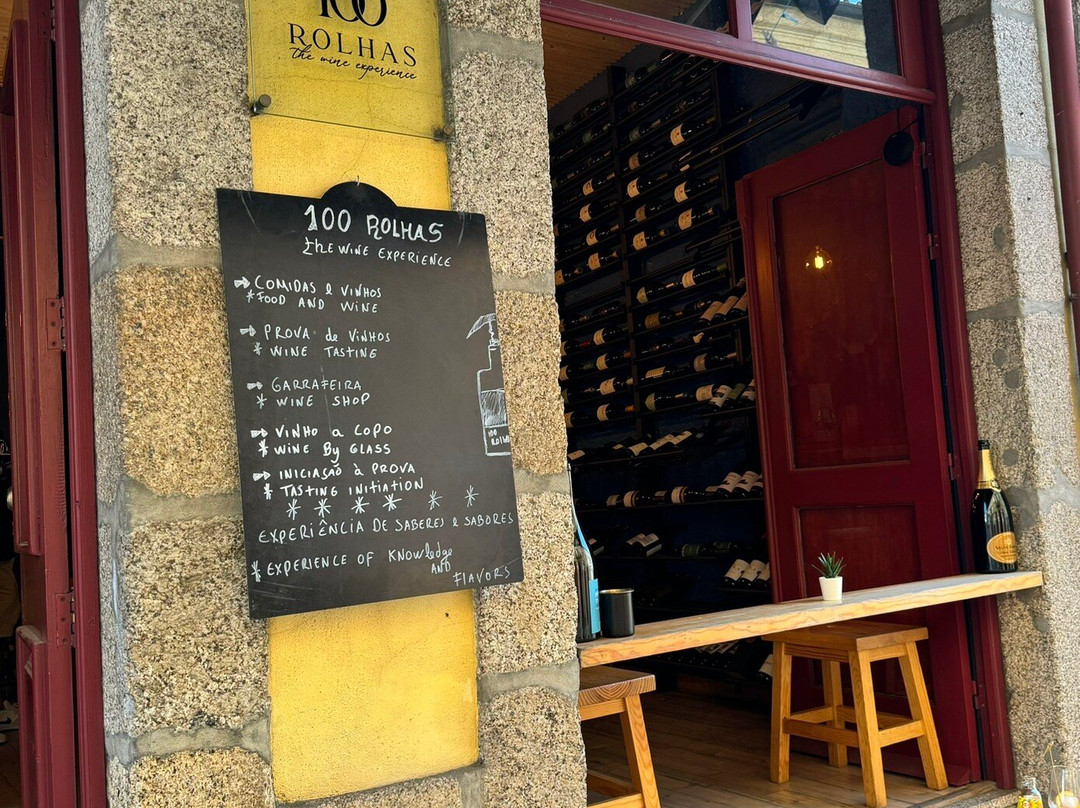 100
ROLHAS
the wine experience
100 ROLHAS
the WINE EXPERIENCE
➡ COMIDAS e VINHOS
* FOOD AND WINE
➡ PROVA de VINHOS
* WINE TASTING
➡ GARRAFEIRA
* WINE SHOP
➡ VINHO a COPO
* WINE By GLASS
➡ INICIAÇÃO à PROVA
* TASTING INITIATION
* * * * * *
EXPERIÊNCIA DE SABERES e SABORES
* EXPERIENCE OF KNOWledge
AND
FLAVORS
100